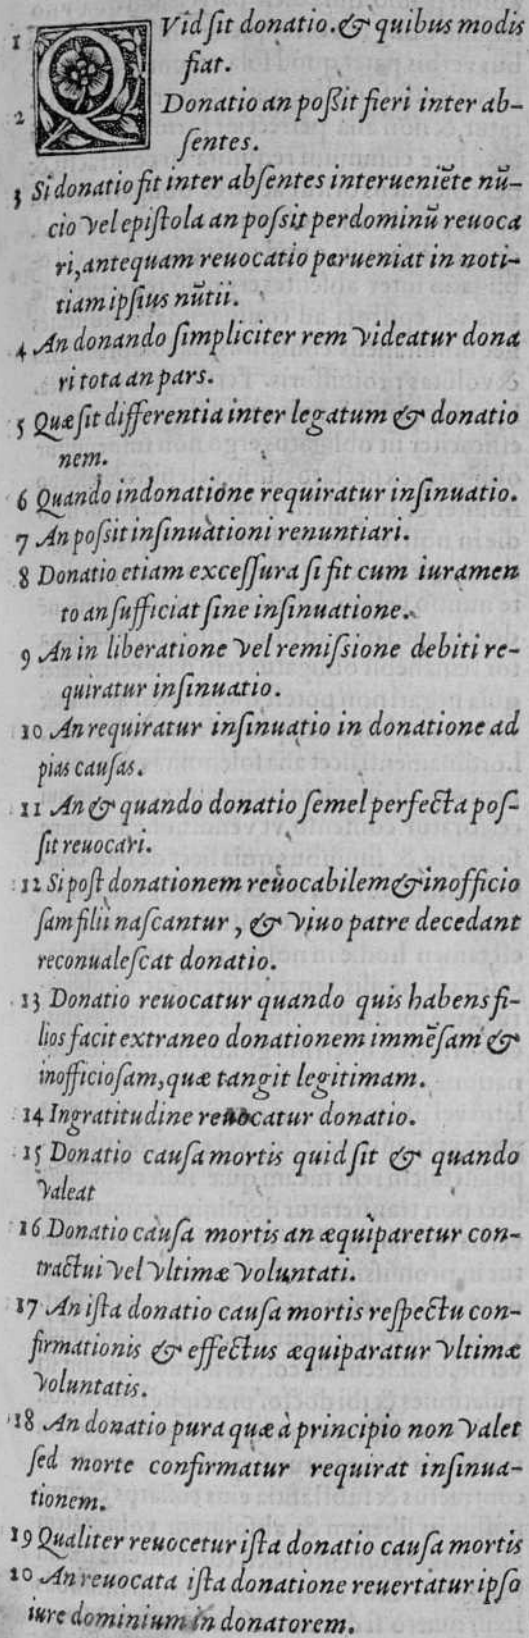 1 QVid ſit donatio. & quibus modis
fiat.
2 Donatio an poßit fieri inter ab-
ſentes.
3 Si donatio fit inter abſentes interueniēte nū-
cio vel epiſtola an poſsit per dominū reuoca
ri, antequam reuocatio perueniat in noti-
tiam ipſius nūtii.
4 An donando ſimpliciter rem videatur dona
ri tota an pars.
5 Quæ ſit differentia inter legatum & donatio
nem.
6 Quando in donatione requiratur inſinuatio.
7 An poſsit inſinuationi renuntiari.
8 Donatio etiam exceſſura ſi fit cum iuramen
to an ſufficiat ſine inſinuatione.
9 An in liberatione vel remiſsione debiti re-
quiratur inſinuatio.
10 An requiratur inſinuatio in donatione ad
pias cauſas.
11 An & quando donatio ſemel perfecta poſ-
ſit reuocari.
12 Si poſt donationem reuocabilem & inofficio
ſam filii naſcantur, & viuo patre decedant
reconualeſcat donatio.
13 Donatio reuocatur quando quis habens fi-
lios facit extraneo donationem immēſam &
inofficioſam, quæ tangit legitimam.
14 Ingratitudine reuocatur donatio.
15 Donatio cauſa mortis quid ſit & quando
valeat
16 Donatio cauſa mortis an æquiparetur con-
tractui vel vltimæ voluntati.
17 An iſta donatio cauſa mortis reſpectu con-
firmationis & effectus æquiparatur vltimæ
voluntatis.
18 An donatio pura quæ à principio non valet
ſed morte confirmatur requirat inſinua-
tionem.
19 Qualiter reuocetur iſta donatio cauſa mortis
20 An reuocata iſta donatione reuertatur ipſo
iure dominium in donatorem.